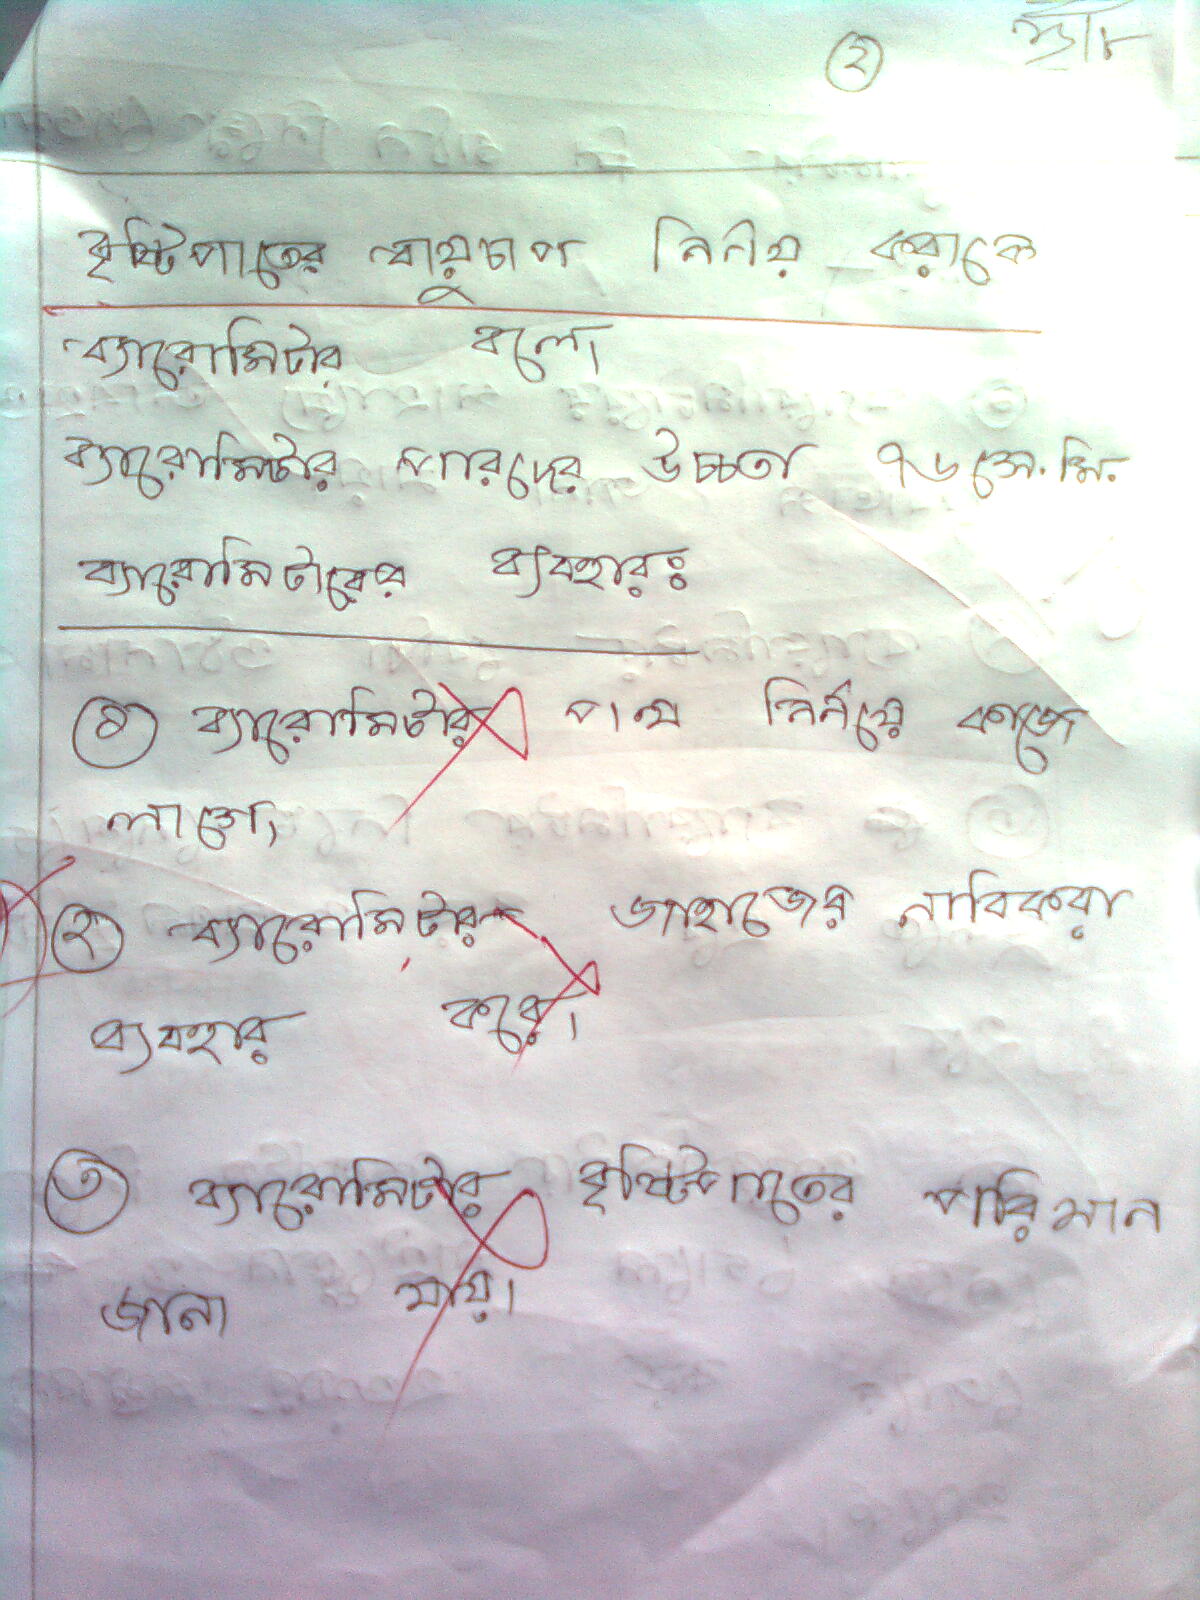 ২
বৃষ্টিপাতের বায়ুচাপ নিনয় করাকে
ব্যারোমিটার বলে।
ব্যারোমিটার পারদের উচ্চতা ৭৬ সে.মি.
ব্যারোমিটারের ব্যবহারঃ
১ ব্যারোমিটার নির্নয়ে কাজে
লাগে।
২ ব্যারোমিটার জাহাজের নাবিকরা
ব্যবহার করে।
৩ ব্যারোমিটার বৃষ্টিপাতের পরিমান
জানা যায়।